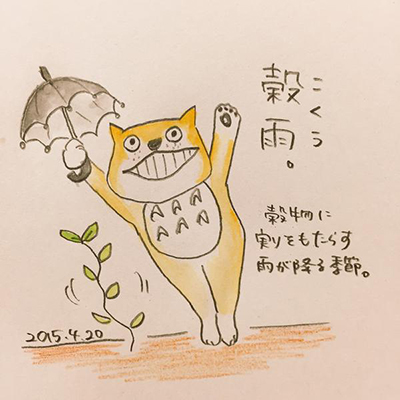 穀雨。
こくう
穀物に
実りをもたらす
雨が降る季節。
2015.4.20